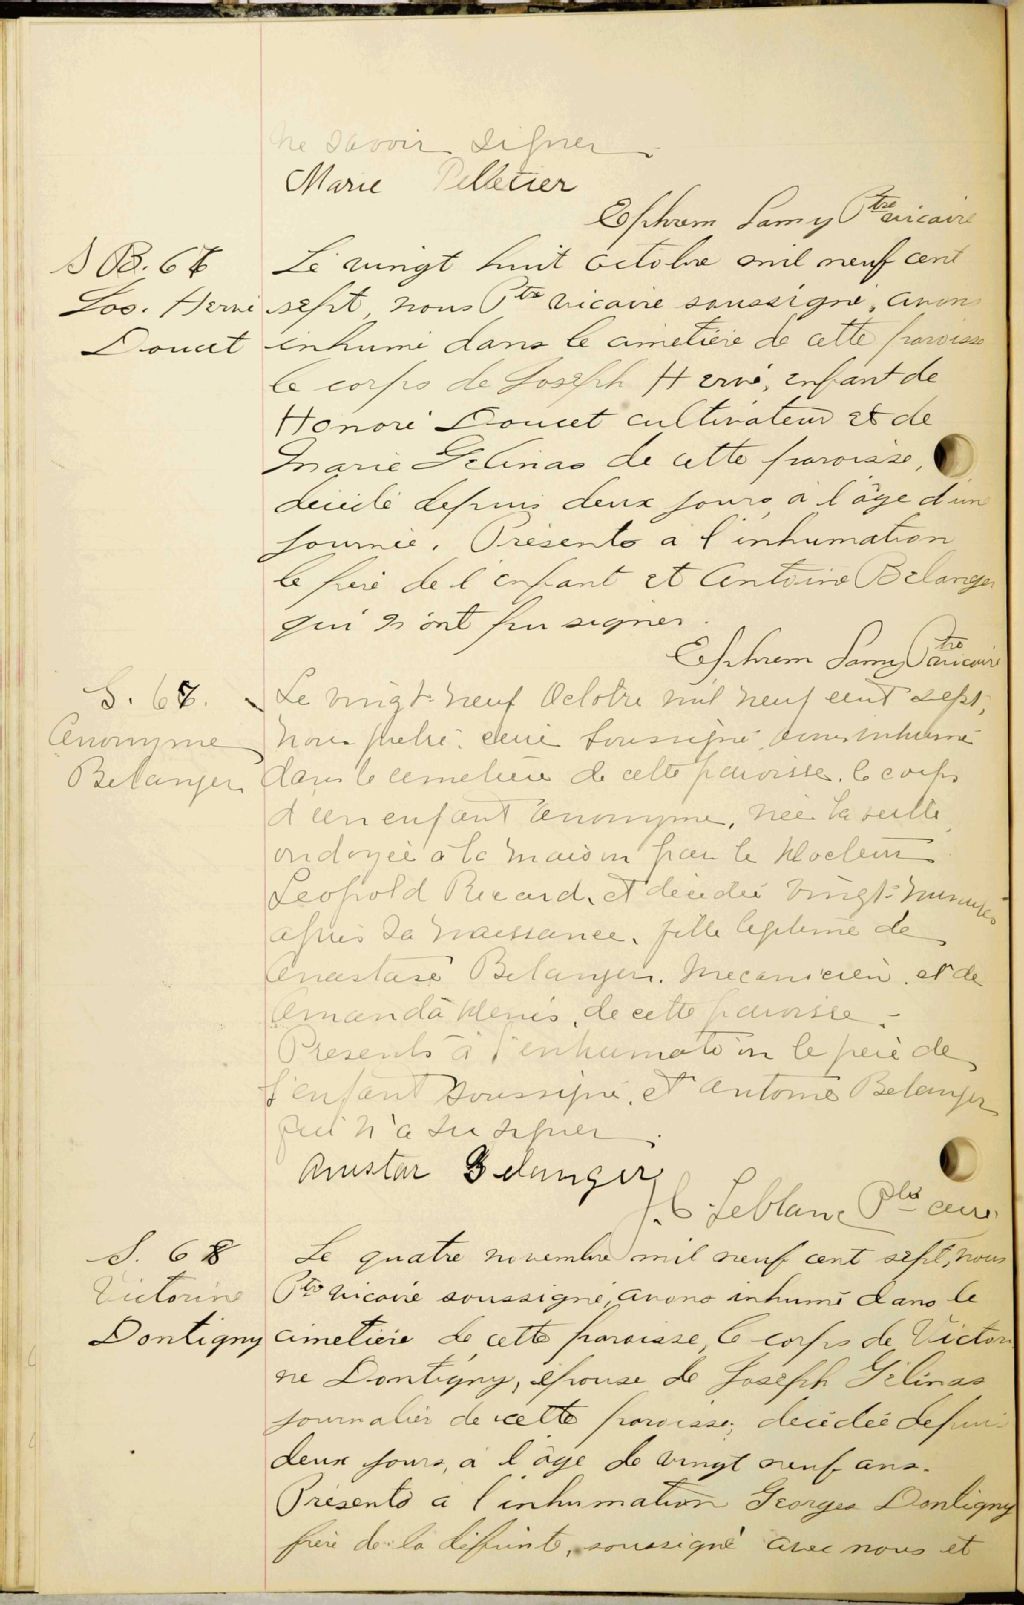 ne savoir signer
Marie Pelletier
Ephrem Lamy Ptre vicaire
S B. 66
Jos. Hervé
Doucet
Le vingt huit octobre mil neuf cent
sept, nous Ptre vicaire soussigné, avons
inhumé dans le cimetière de cette paroisse
le corps de Joseph Hervé, enfant de
Honoré Doucet cultivateur et de
Marie Gélinas de cette paroisse,
décédé depuis deux jours, à l'âge d'une
journée. Présents à l'inhumation
le père de l'enfant et Antoine Bélanger
qui n'ont pu signer.
Ephrem Lamy Ptre vicaire
S. 67.
Anonyme
Belanger
Le vingt-neuf Octobre mil neuf cent sept,
nous prêtre curé soussigné avons inhumé
dans le cimetière de cette paroisse, le corps
d'un enfant anonyme, née la veille,
ondoyée à la maison par le Docteur
Leopold Ricard, et décédée vingt-minutes
après sa naissance, fille légitime de
Anastase Belanger. Mecanicien, et de
Amanda Denis, de cette paroisse.-
Presents à l'inhumation le père de
l'enfant soussigné, et Antoine Belanger
qui n'a su signer.
Anistas Belanger
J. C. Leblanc Ptre curé
S. 68
Victorine
Dontigny
Le quatre novembre mil neuf cent sept, nous
Ptre vicaire soussigné, avons inhumé dans le
cimetière de cette paroisse, le corps de Victori
ne Dontigny, épouse de Joseph Gélinas
journalier de cette paroisse, décédée depuis
deux jours, à l'âge de vingt neuf ans.
Présents à l'inhumation Georges Dontigny
frère de la défunte, soussigné avec nous et